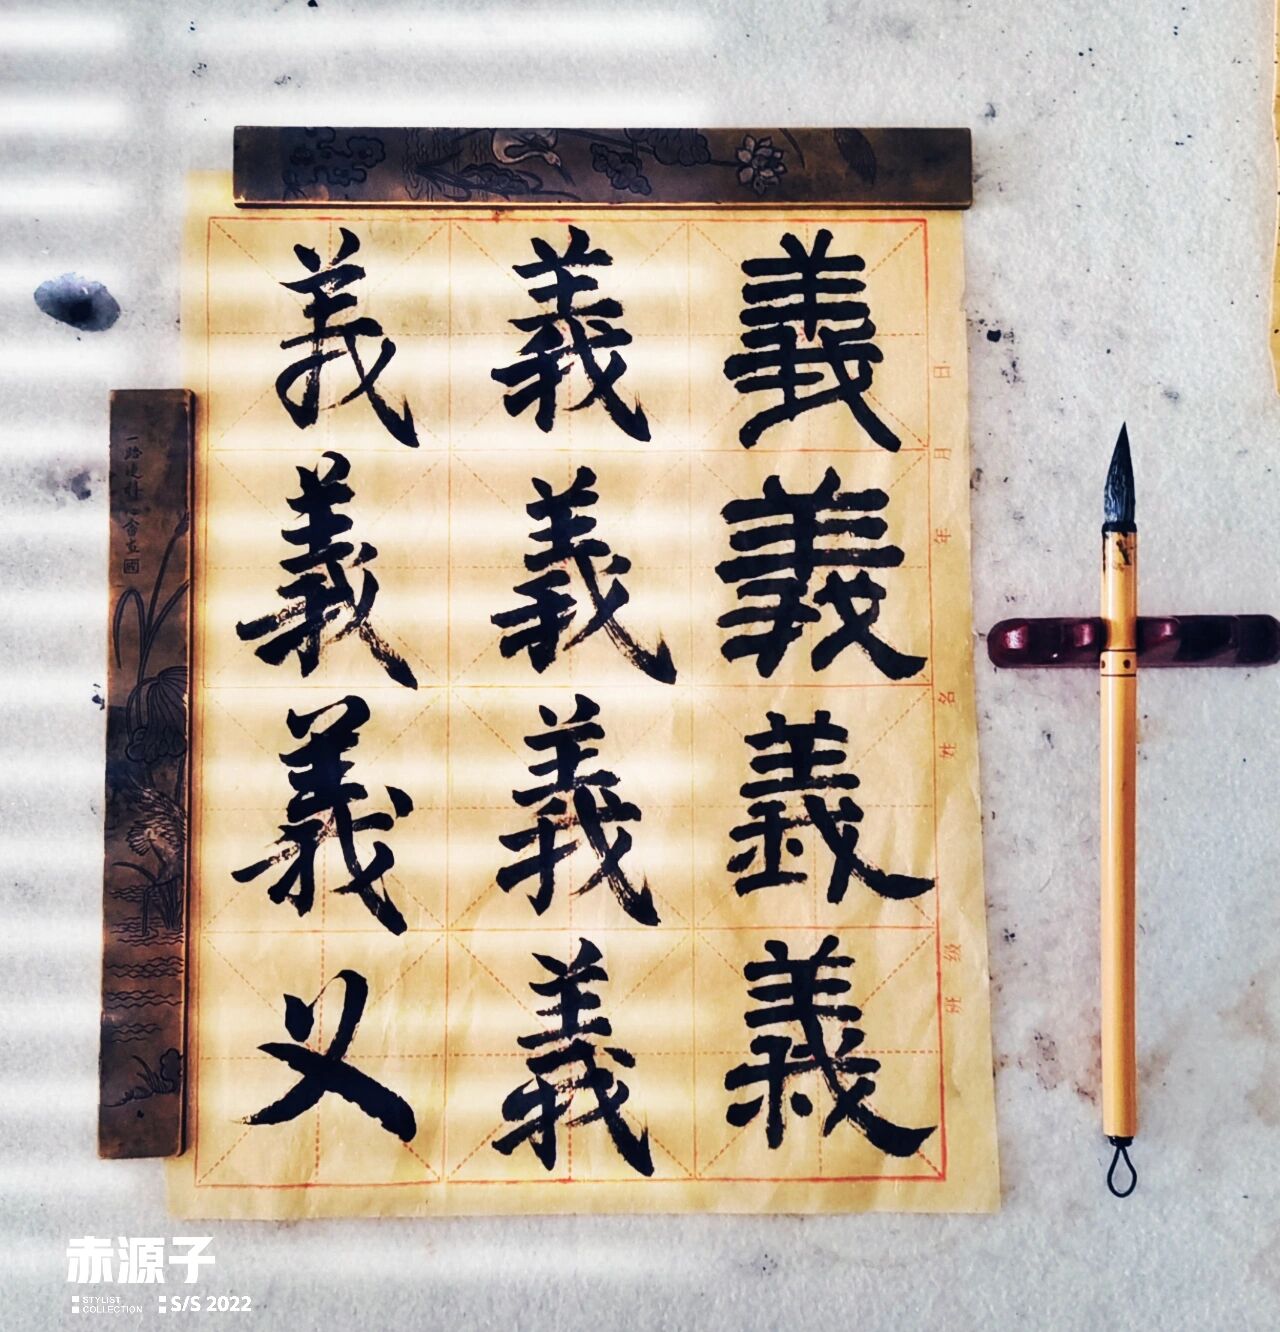 義義義義
義義義義
義義義义
班级 姓名 年 月 日
一路連科
赤源子
STYLIST
COLLECTION
S/S 2022